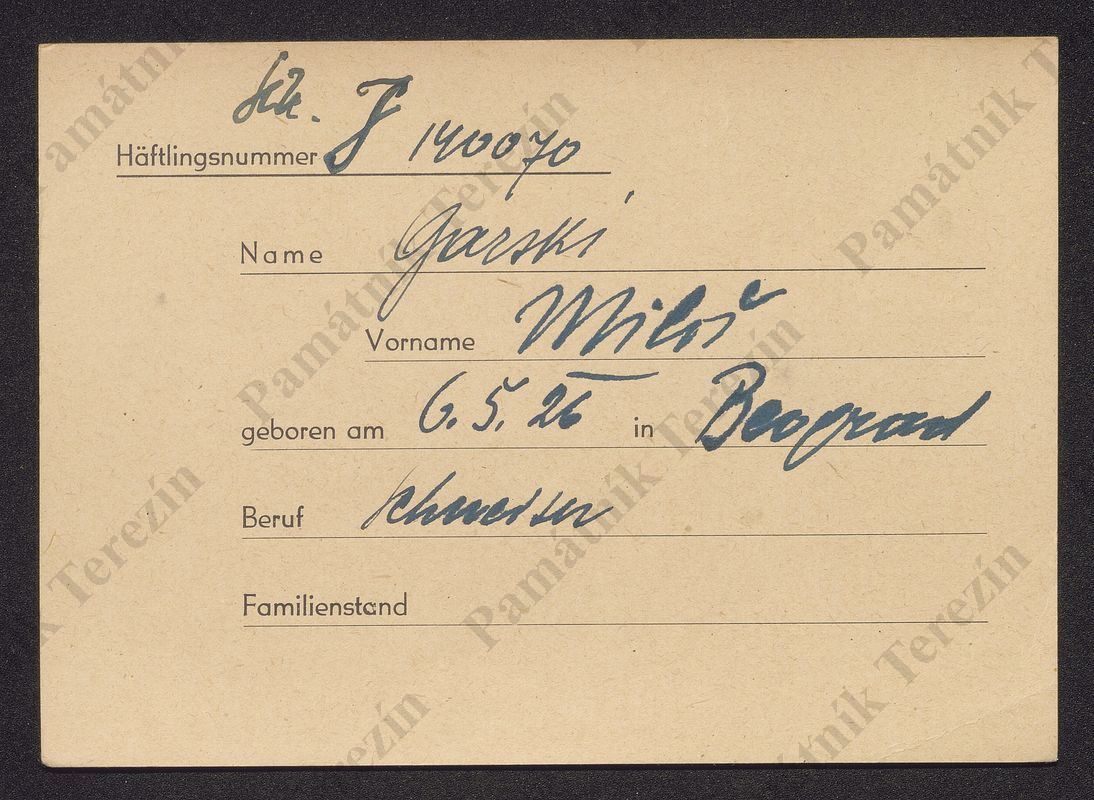 Häftlingsnummer J 140070
Name Garski
Vorname Miloš
geboren am 6.5.26 in Beograd
Beruf Schneider
Familienstand
Památník Terezín
Památník Terezín
Památník Terezín
Památník Terezín
Památník Terezín